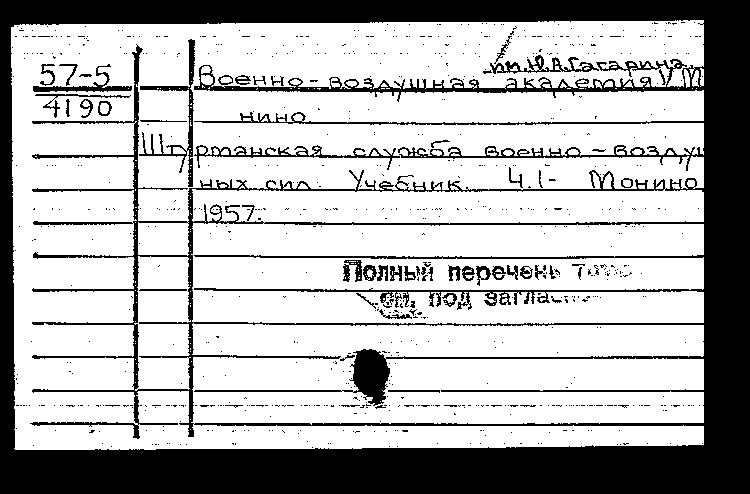 57-5
4190
им. Ю.А. Гагарина
Военно-воздушная академия
нино
Штурманская служба военно-возду
ных сил. Учебник. Ч.1- Монино
1957.
Полный перечень
см. под